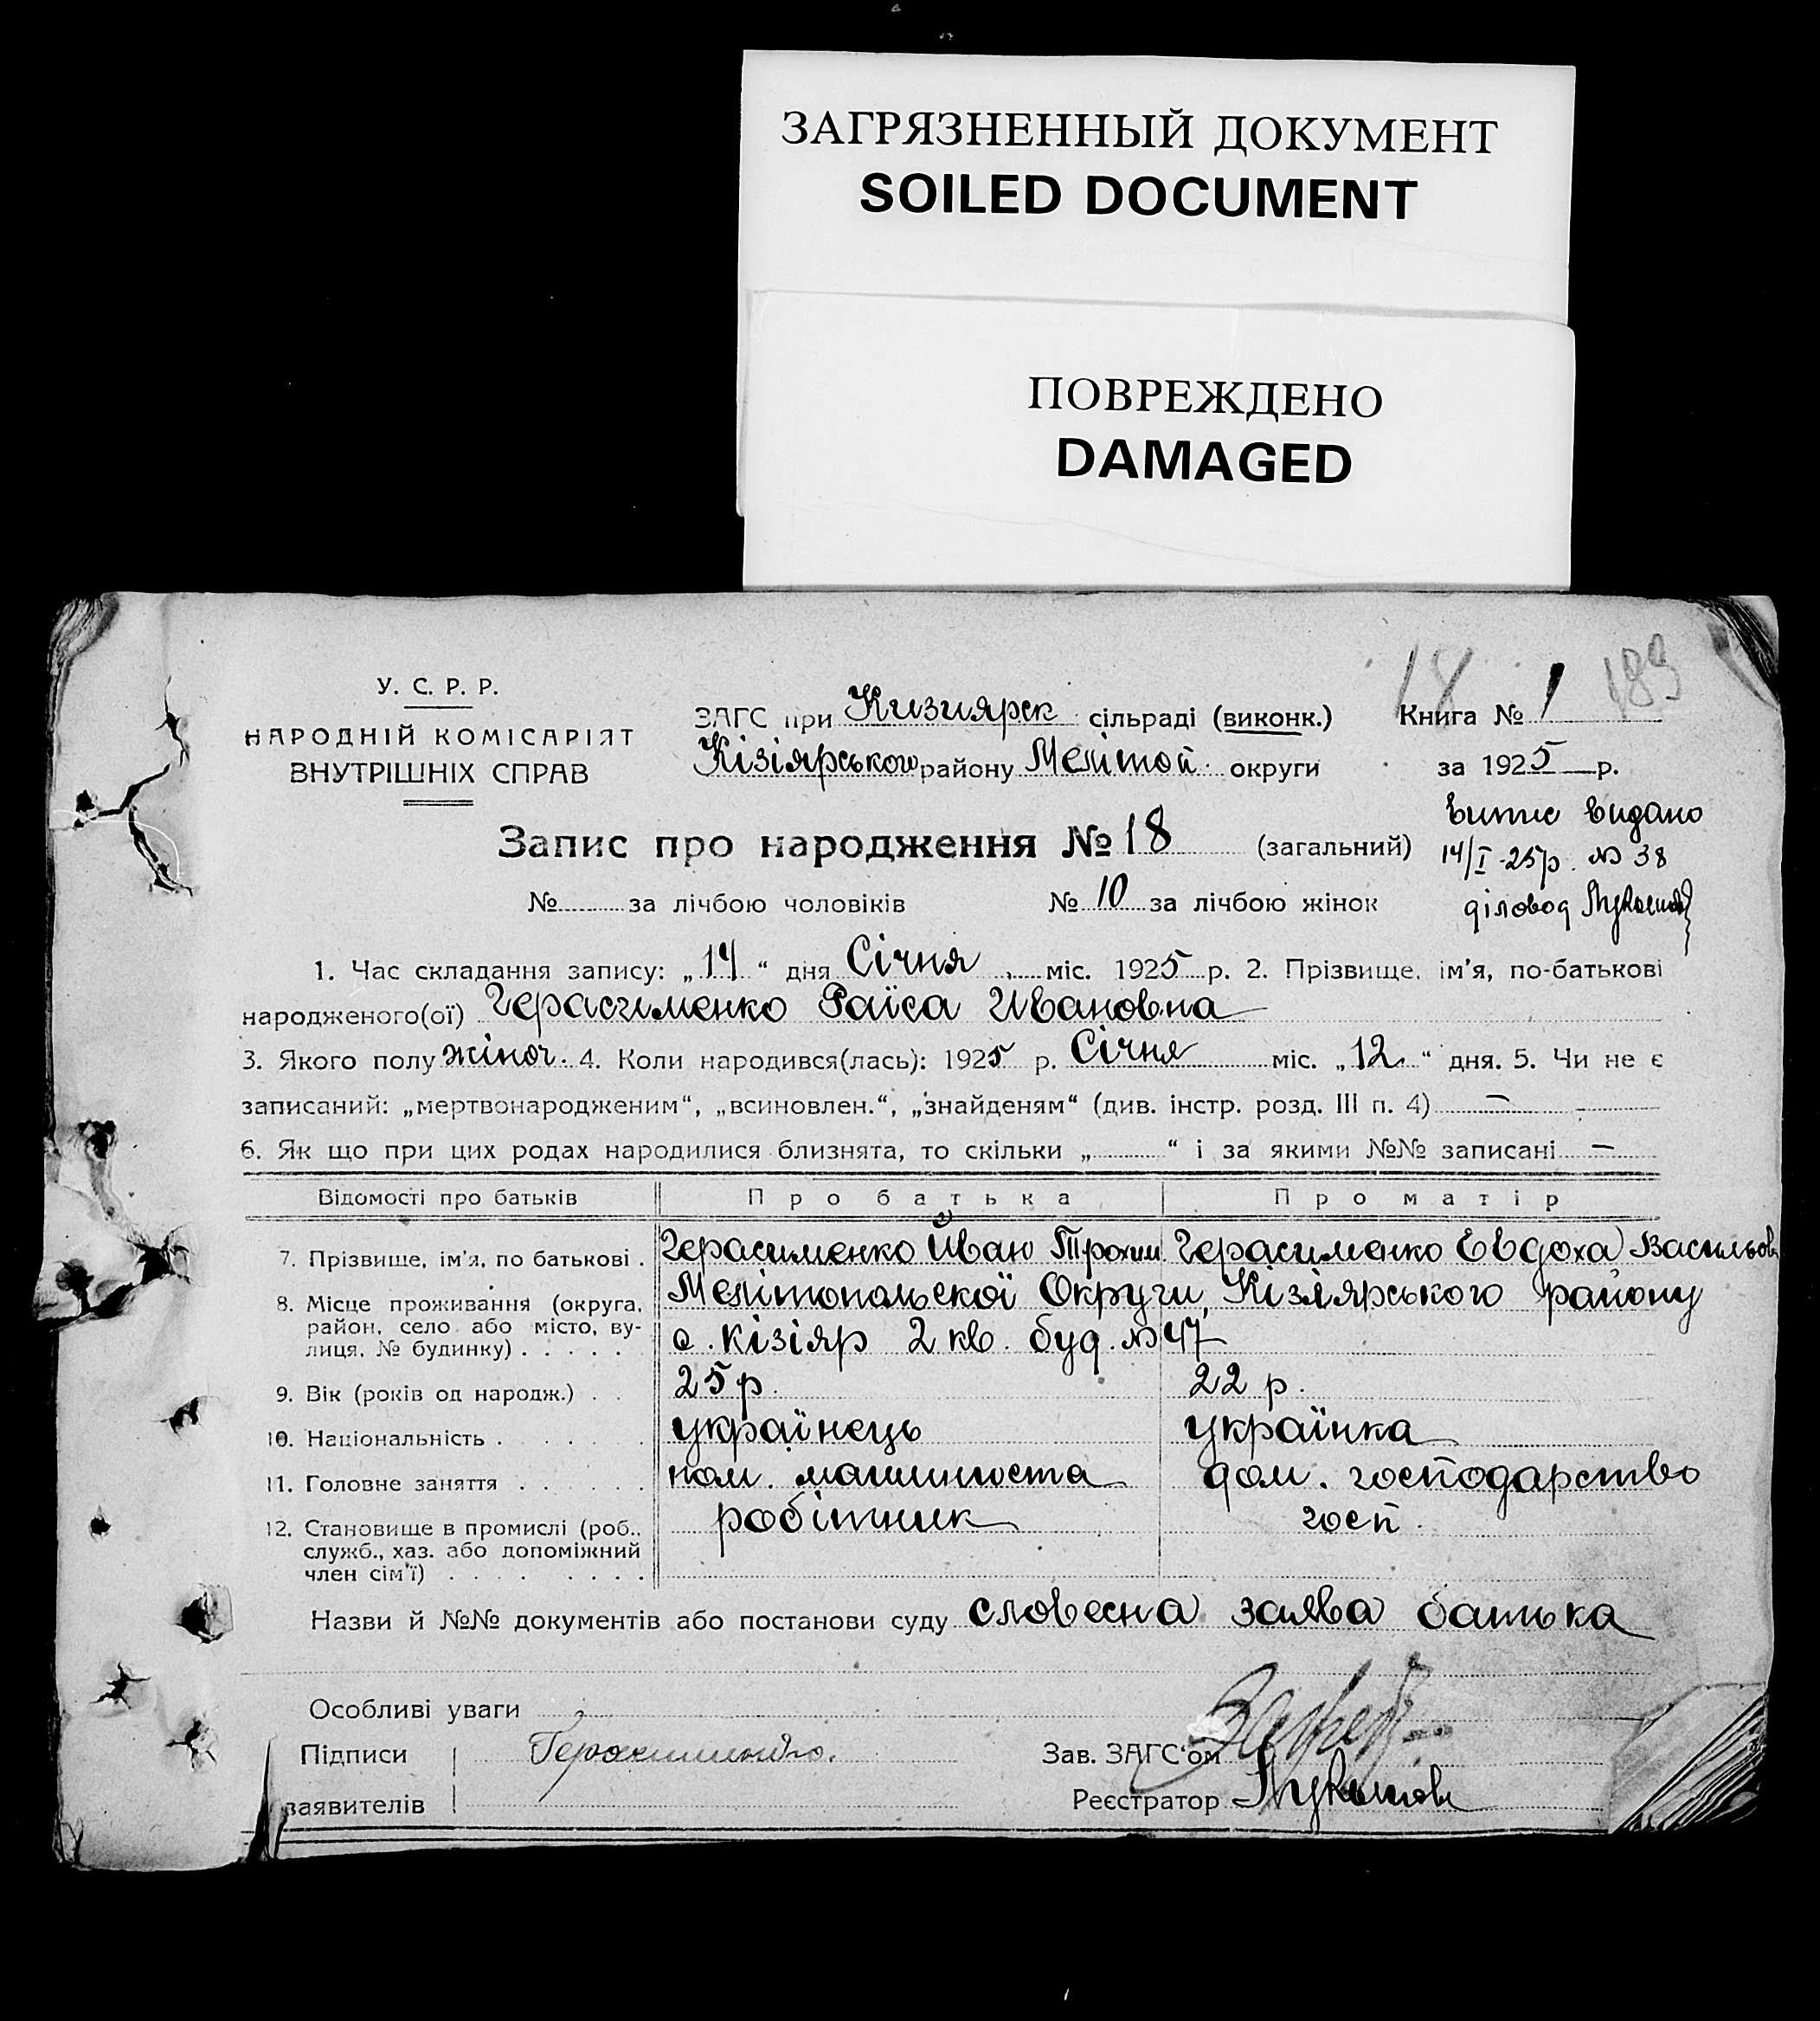 ЗАГРЯЗНЕННЫЙ ДОКУМЕНТ
SOILED DOCUMENT
ПОВРЕЖДЕНО
DAMAGED
18 183
У. С. Р. Р.
НАРОДНІЙ КОМІСАРІЯТ
ВНУТРІШНІХ СПРАВ
ЗАГС при Кизиярск сільраді (виконк.) Книга № 1
Кізіярського району Меліто́п. округи за 1925 р.
Запис про народження № 18 (загальний)
витис видано
14/I-25р. № 38
діловод
№ за лічбою чоловіків № 10 за лічбою жінок
1. Час складання запису: „14“ дня Січня міс. 1925 р. 2. Прізвище, ім'я, по-батькові
народженого(ої) Герасименко Раїса Ивановна
3. Якого полу жіноч. 4. Коли народився(лась): 1925 р. Січня міс. „12“ дня. 5. Чи не є
записаний: „мертвонародженим“, „всиновлен.“, „знайденям“ (див. інстр. розд. III п. 4) —
6. Як що при цих родах народилися близнята, то скільки „ “ і за якими №№ записані —
Відомості про батьків Про батька Про матір
7. Прізвище, ім'я, по батькові . Герасименко Иван Трохим. Герасименко Евдоха Васильов
8. Місце проживання (округа, район, село або місто, ву-лиця, № будинку) . . . . . Мелітопольскої Округи, Кізіярського району
с. Кізіяр 2 кв. буд. № 47
9. Вік (років од народж.) . . 25 р. 22 р.
10. Національність . . . . . . українець українка
11. Головне заняття . . . . . . пом. машиниста дом. господарство
12. Становище в промислі (роб., робітник госп.
служб., хаз. або допоміжний
член сім'ї) . . . . . . . .
Назви й №№ документів або постанови суду словесна заява батька
Особливі уваги
Підписи Герасименко. Зав. ЗАГС'ом
заявителів Реєстратор